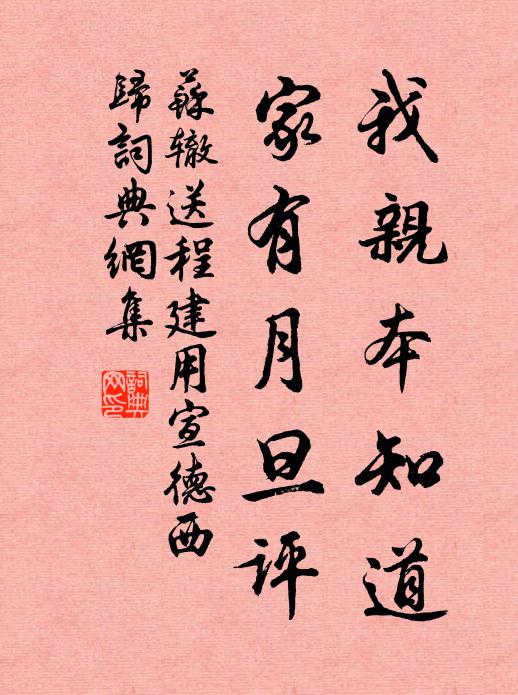 我親本知道
家有月旦評
蘇辙送程建用宣德西
歸詞典網集
詞典
网印